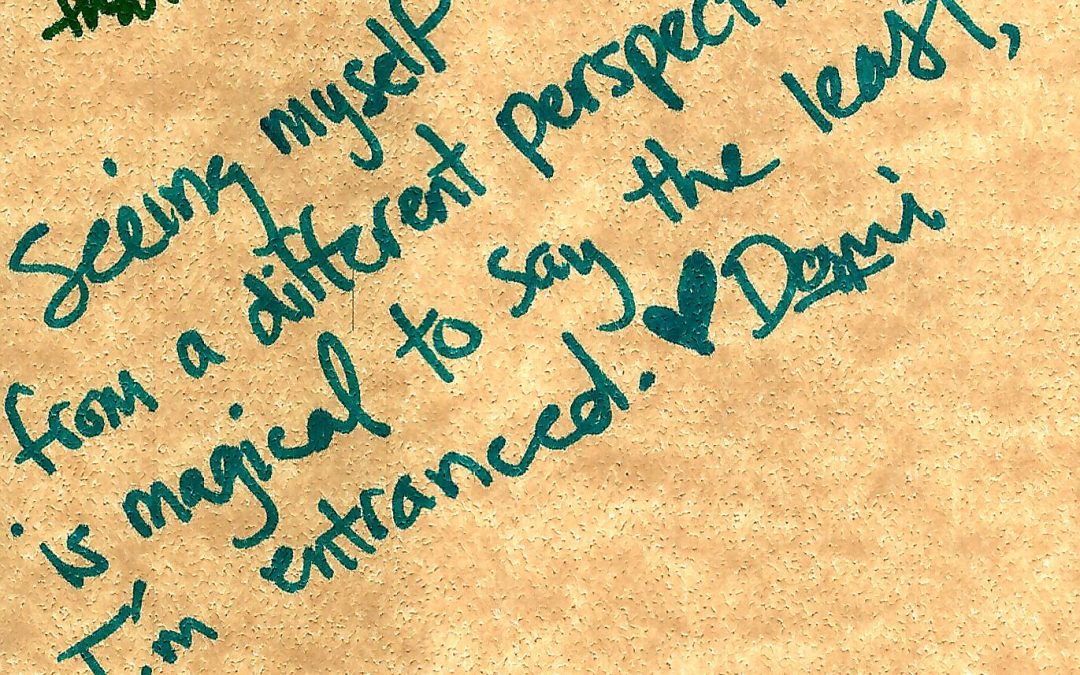 Seeing myself
from a different perspecti
is magical to say the least,
I'm entranced. ♥ Dami